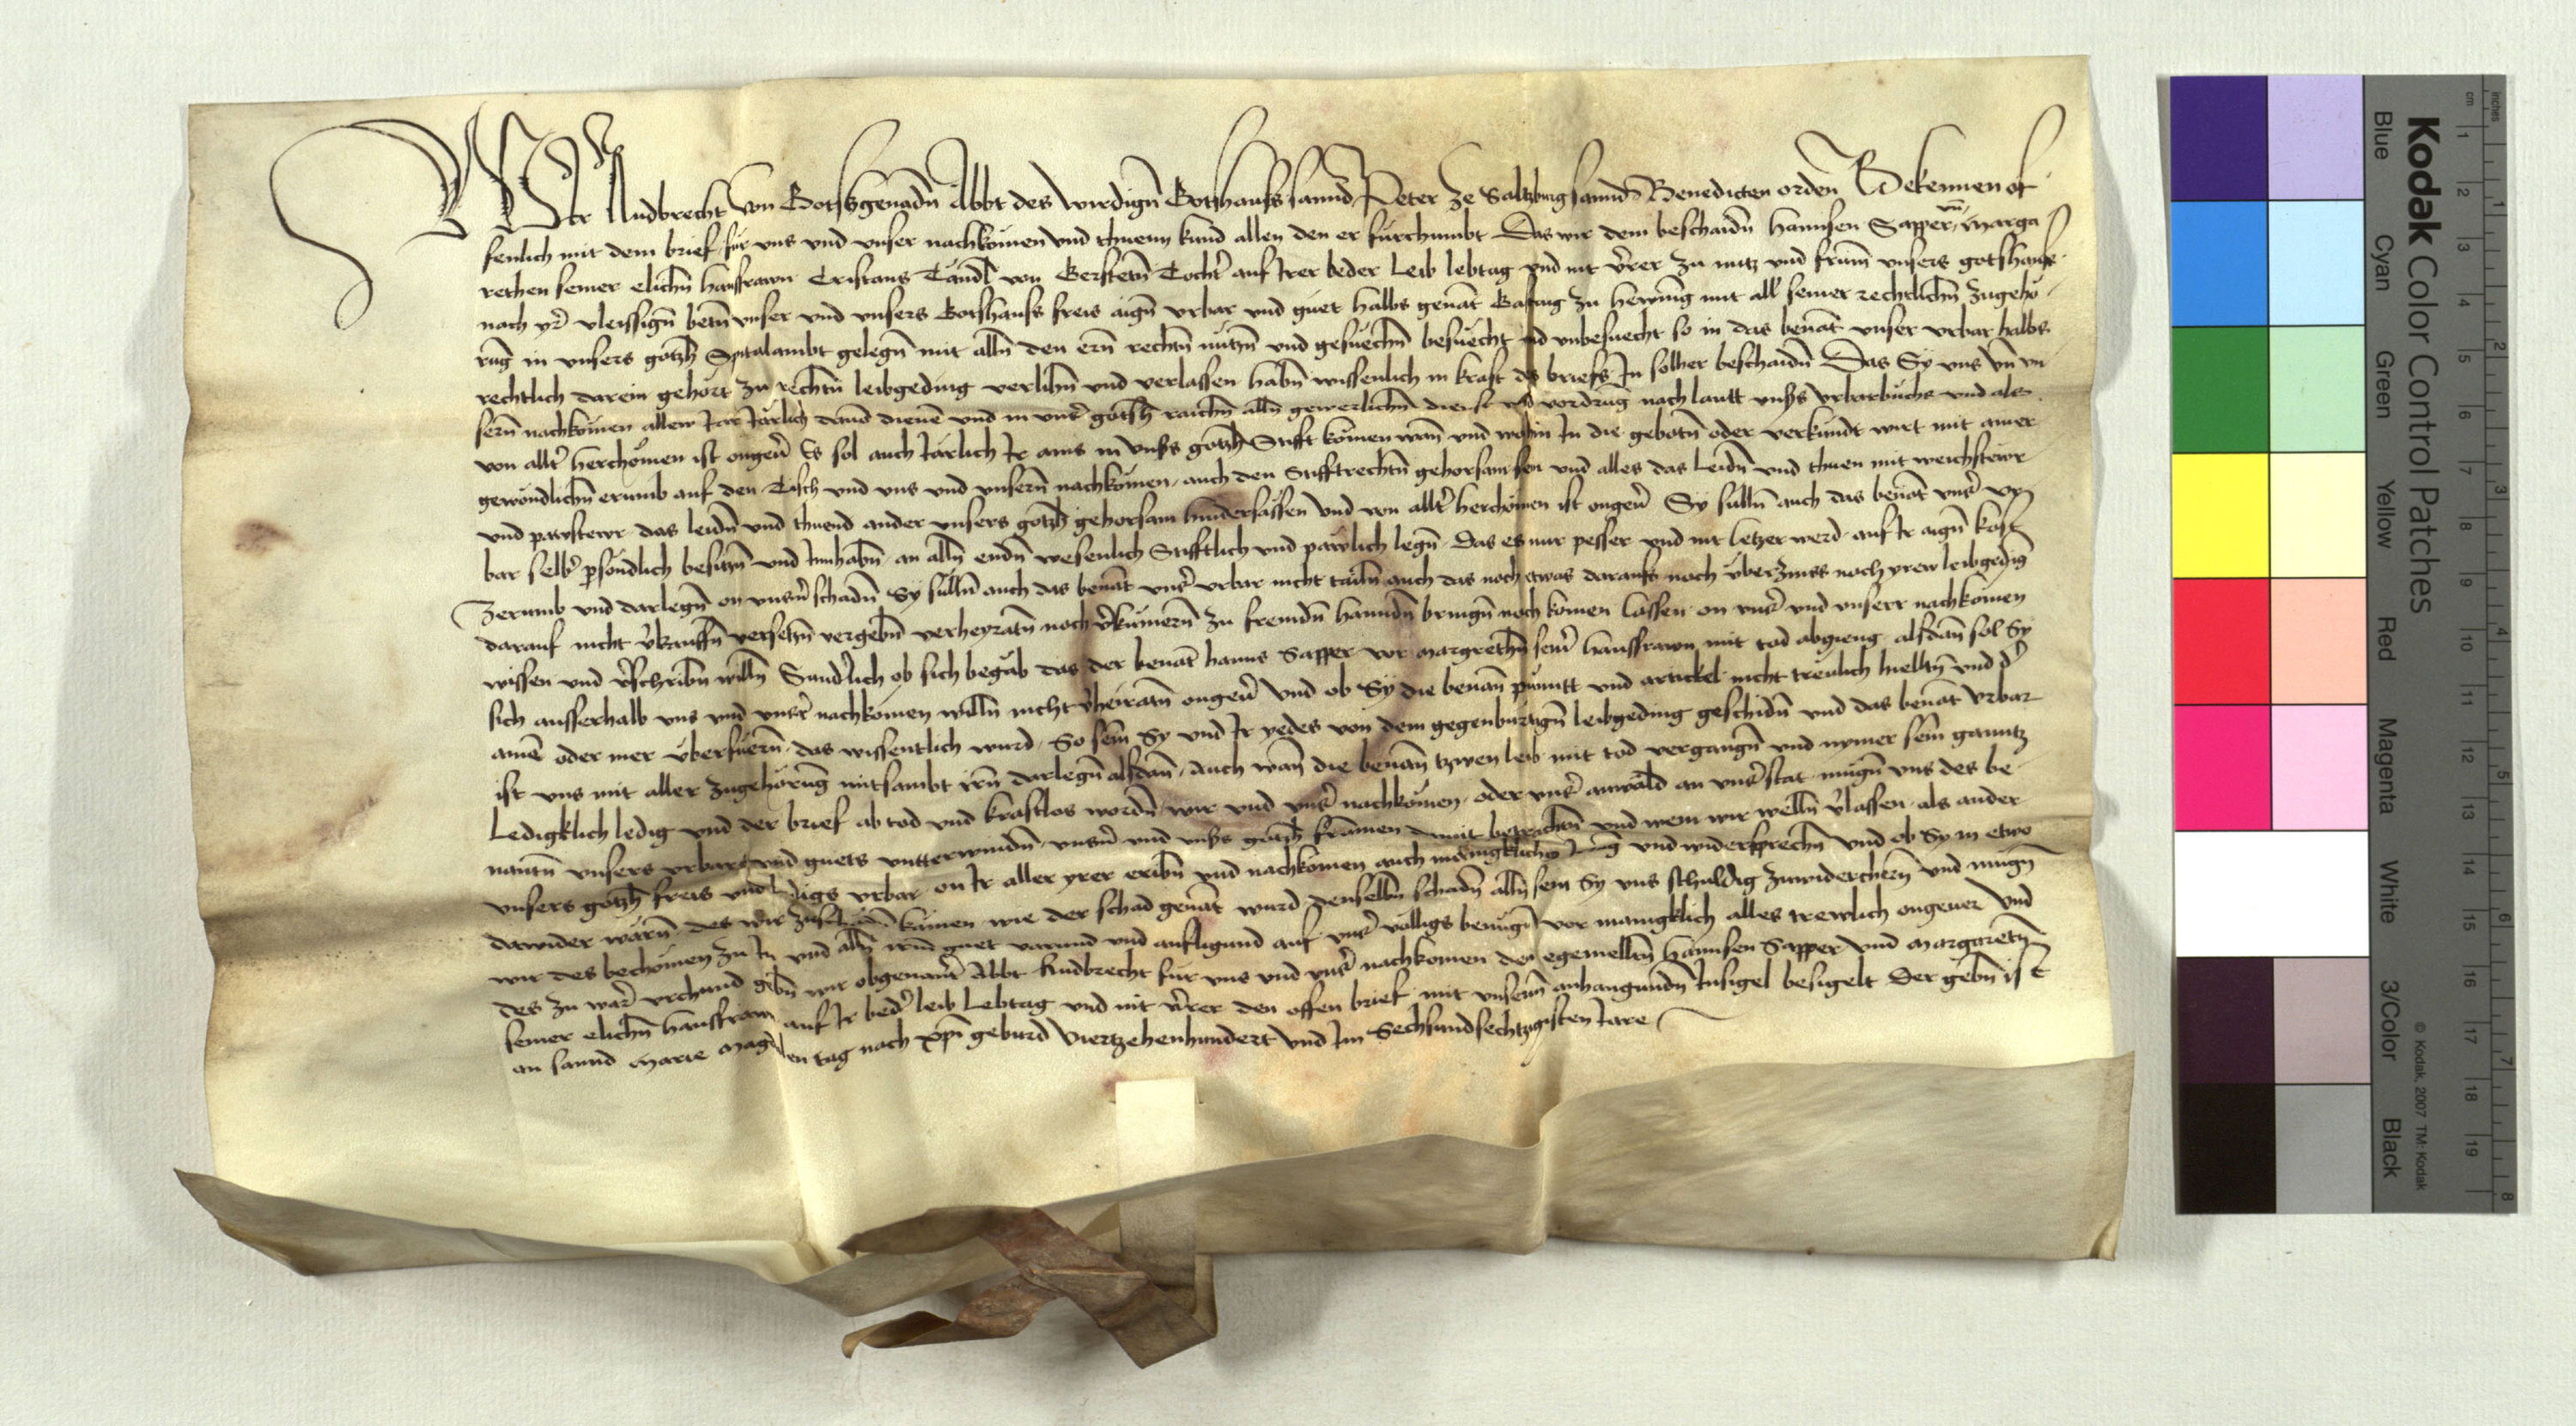 Wir Rudbrecht von Gotsgenadn̄ Abbt des wirdign̄ Gotshauss sannd Peter ze Saltzburg sannd Benedicten orden Bekennen of
fenlich mit dem brief fúr vns vnd vnser nachkomen vnd thuenn kund allen den er fúrchumbt Das wir dem beschaidn̄ Hannsen Sapper vn̄ Marga
rethen seiner elichn̄ hausfrawn Cristans Tánndl von Gerstetn̄ Tocht̄ auf Irer beder Leib lebtag vnd nit v̄rer zu nutz vnd frumn̄ vnsers gotshauss
nach yr̄ vleissign̄ betn̄ vnser vnd vnsers Gotshauss freis aign̄ vrbar vnd guet halbs genāt zu mit all seiner rechtlichn̄ zugehö
rūg in vnsers gotzh̄ Spitalambt gelegn̄ mit alln̄ den ern̄ rechtn̄ nútzn̄ vnd gesuechn̄ besuecht vnd vnbesuecht so in das benāt vnser vrbar halbs
rechtlich darein gehört zu rechtn̄ leibgeding verlihn̄ vnd verlassen habn̄ wissenlich in kraft ds briefs In solher beschaidn̄ Das Sy vns vn̄ vn
sern̄ nachkömen allew Iar Járlich dauō dienē vnd in vnsr̄ gotsh̄ raichn̄ alln̄ gewerlichn̄ dienst vnd vordrūg nach lautt vns̄s Vrbarbuchs vnd als
von allt̄ herchömen ist ongeu̇̄ Es sol auch Járlich Ir ains in vns̄s gotzh̄ Stifft kömen wan̄ vnd wohin In die gebotn̄ oder verkúndt wirt mit ainer
gewöndlichn̄ erumb auf den Tisch vnd vns vnd vnsern̄ nachkömen auch den Stifftrechtn̄ gehorsam sein vnd alles das Leidn̄ vnd thuen mit weichstewr
vnd pawstewr das leidn̄ vnd thuend ander vnsers gotzh̄ gehorsam hindersássen vnd von allt̄ herchömen ist ongeu̇̄ Sy sulln̄ auch das benāt vnsr̄ vr
bar selb̄ psöndlich besitzn̄ vnd Innhabn̄ an alln̄ endn̄ wesenlich Stifftlich vnd pawlich legn̄ Das es nur pesser vnd nit letzer werd auf Ir aign̄ kost
Zerumb vnd darlegn̄ on vnsn̄ schadn̄ Sy sulln̄ auch das benāt vnsr̄ vrbar nicht tailn̄ auch das noch etwas darauss noch úberzinss noch yrew leibgeding
darauf nicht v̄kauffn̄ versetzn̄ vergebn̄ verheyratn̄ noch v̄kúmern̄ zu fremdn̄ hanndn̄ bringn̄ noch komen lassen on vnsr̄ vnd vnserr nachkömen
wissen vnd v̄schribn̄ willn̄ Sund̄lich ob sich begáb das der benāt Hanns Sapper vor Margrethn̄ sein̄ hausfrawn mit tod abgieng alsdan̄ sol Sy
sich ausserhalb vns vnd vnsr̄ nachkömen willn̄ nicht v̄heiratn̄ ongeu̇̄ Vnd ob Sy die benan̄ púnntt vnd artickel nicht treulich hielltn̄ vnd d̄
ainē oder mer úberfuern̄ das wissentlich wurd So sein Sy vnd Ir yedes von dem gegenbúrtign̄ leibgeding geschidn̄ vnd das benāt Vrbar
ist vns mit aller zugehörūg mitsambt irn̄ darlegn̄ alsdan̄ Auch wan̄ die benan̄ tzwen leib mit tod vergangn̄ vnd nymer sein ganntz
Ledigklich ledig vnd der brief ab tod vnd kraftlos wordn̄ wir vnd vnsr̄ nachkömen oder vnsr̄ anwald an vnsr̄ stat mugn̄ vns des be
nantn̄ vnsers vrbars vnd guets vntterwindn̄ vnsn̄ vnd vns̄s gotzh̄ frumen damit betrachtn̄ vnd wem wir welln̄ v̄lassen als ander
vnsers gotzh̄ freis vnd ledigs vrbar on Ir aller yrer eribn̄ vnd nachkömen auch mánigklichs Irrūg vnd widersprechn̄ vnd ob Sy in etwo
dawider wárn̄ des wir zuschádn̄ kámen wie der schad genāt wurd denselbn̄ schadn̄ alln̄ sein Sy vns schuldig zuwiderchern̄ vnd mugn̄
wir des bechömen zu In vnd alln̄ irm̄ guet varund vnd aufligund auf vnsr̄ völligs benúgn̄ vor mánigklich alles trewlich ongeuer Vnd
des zu war̄ vrchund gebn̄ wir obgenant̄ Abbt Rudbrecht fúr vns vnd vnsr̄ nachkomen den egemelltn̄ Hannsen Sapper vnd Margaretn̄
seiner elichn̄ hausfrawn auf Ir bed̄ leib Lebtag vnd nit v̄rer den offen brief mit vnserm̄ anhangundn̄ Insigel besigelt Der gebn̄ ist
an sannd Marie Magdalen tag nach xp̄i geburd Viertzehenhundert vnd Im Sechsundsechtzigisten Iare
Kodak Color Control Patches
Blue Cyan Green Yellow Red Magenta White 3/Color Black
© Kodak, 2007 TM: Kodak
cm 1 2 3 4 5 6 7 8 9 10 11 12 13 14 15 16 17 18 19
inches 1 2 3 4 5 6 7 8